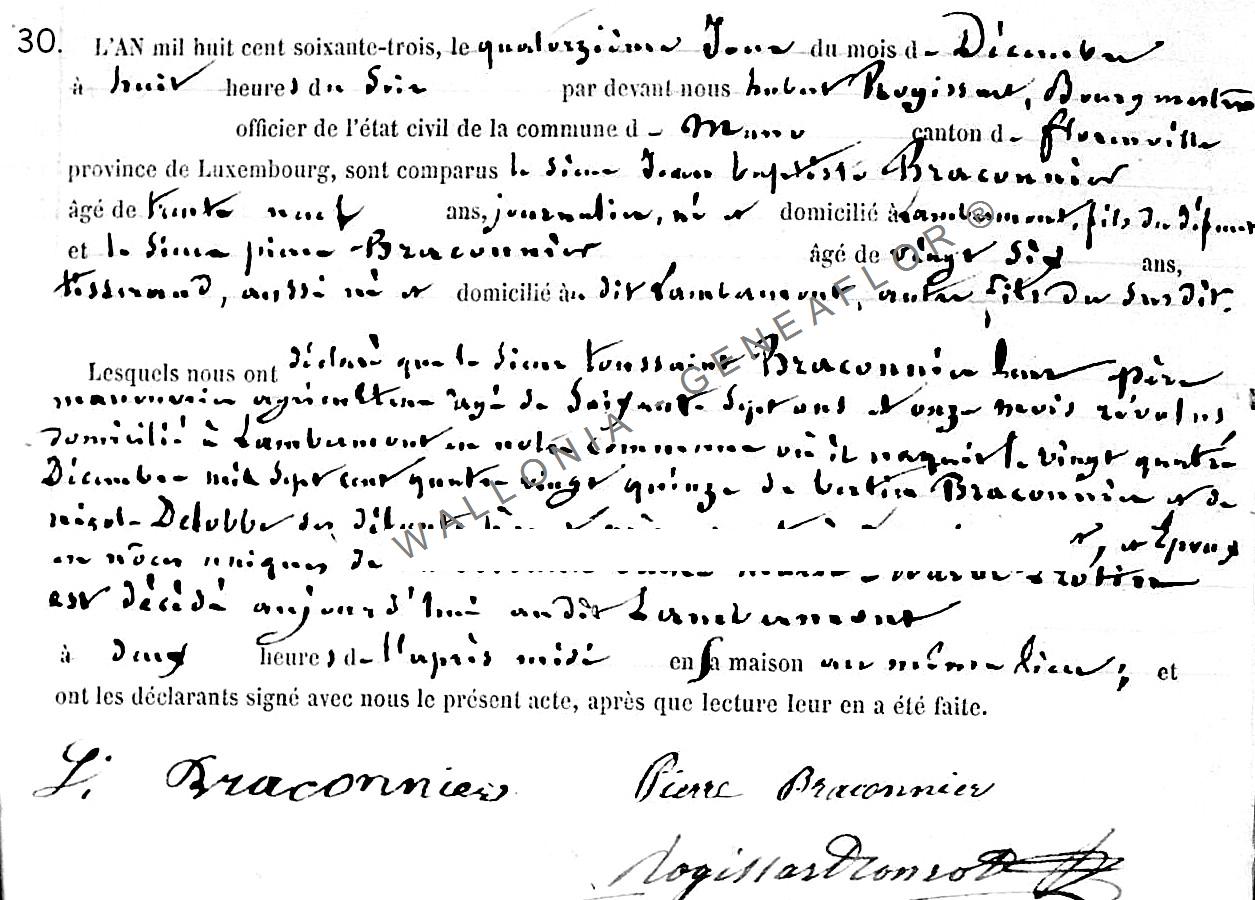 30. L'AN mil huit cent soixante-trois, le quatorzième Jour du mois de Décembre
à huit heures du Soir par devant nous hubert Rogissart, Bourgmestre
officier de l'état civil de la commune de Muno canton de florenville
province de Luxembourg, sont comparus le Sieur Jean baptiste Braconnier
âgé de trente neuf ans, journalier, né et domicilié à Lambermont, fils du défunt
et le Sieur pierre Braconnier âgé de vingt Six ans,
tisserand, aussi né et domicilié au dit Lambermont, autre fils du Susdit.
Lesquels nous ont déclaré que le Sieur toussaint Braconnier leur père
manouvrier agriculteur âgé de Soixante Sept ans et onze mois révolus
domicilié à Lambermont en notre commune où il naquit le vingt quatre
Décembre mil Sept cent quatre vingt quinze de Braconnier et de
Delobbe et Epoux
en nôces uniques de
est décédé aujourd'hui audit Lambermont
à deux heures de l'après midi en sa maison au même lieu; et
ont les déclarants signé avec nous le présent acte, après que lecture leur en a été faite.
Braconnier Pierre Braconnier
WALLONIA - GENEAFLOR ®